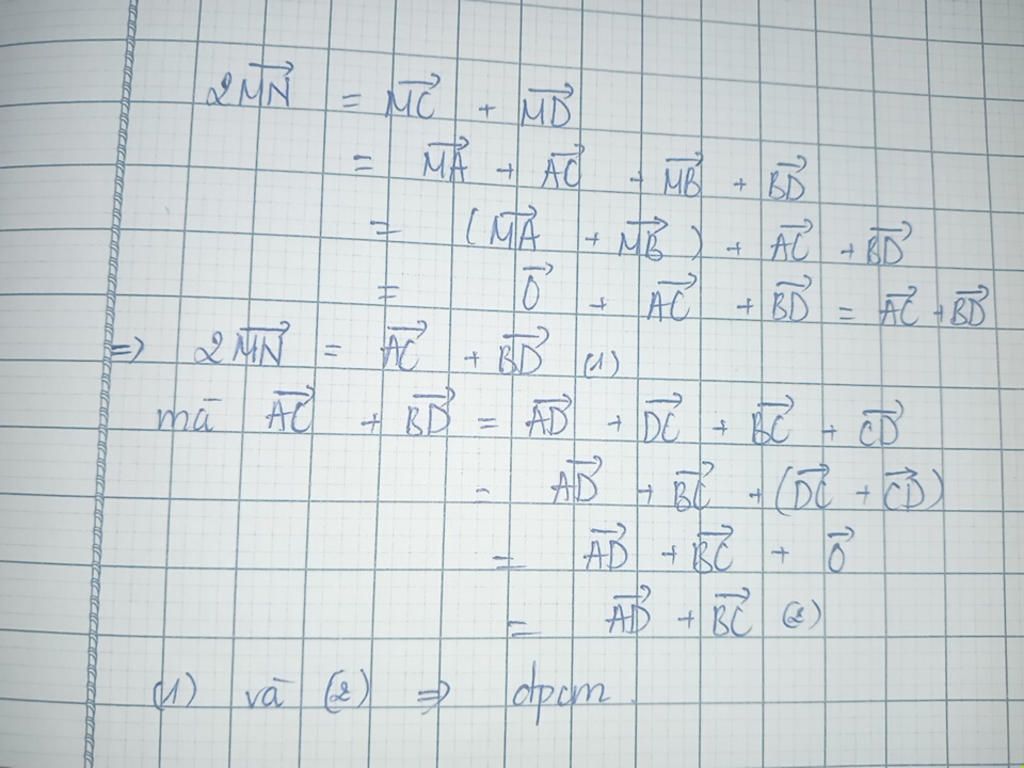 2MN⃗ = MC⃗ + MD⃗
= MA⃗ + AC⃗ + MB⃗ + BD⃗
= (MA⃗ + MB⃗) + AC⃗ + BD⃗
= 0⃗ + AC⃗ + BD⃗ = AC⃗ + BD⃗
=> 2MN⃗ = AC⃗ + BD⃗ (1)
mà AC⃗ + BD⃗ = AD⃗ + DC⃗ + BC⃗ + CD⃗
= AD⃗ + BC⃗ + (DC⃗ + CD⃗)
= AD⃗ + BC⃗ + 0⃗
= AD⃗ + BC⃗ (2)
(1) và (2) => đpcm.